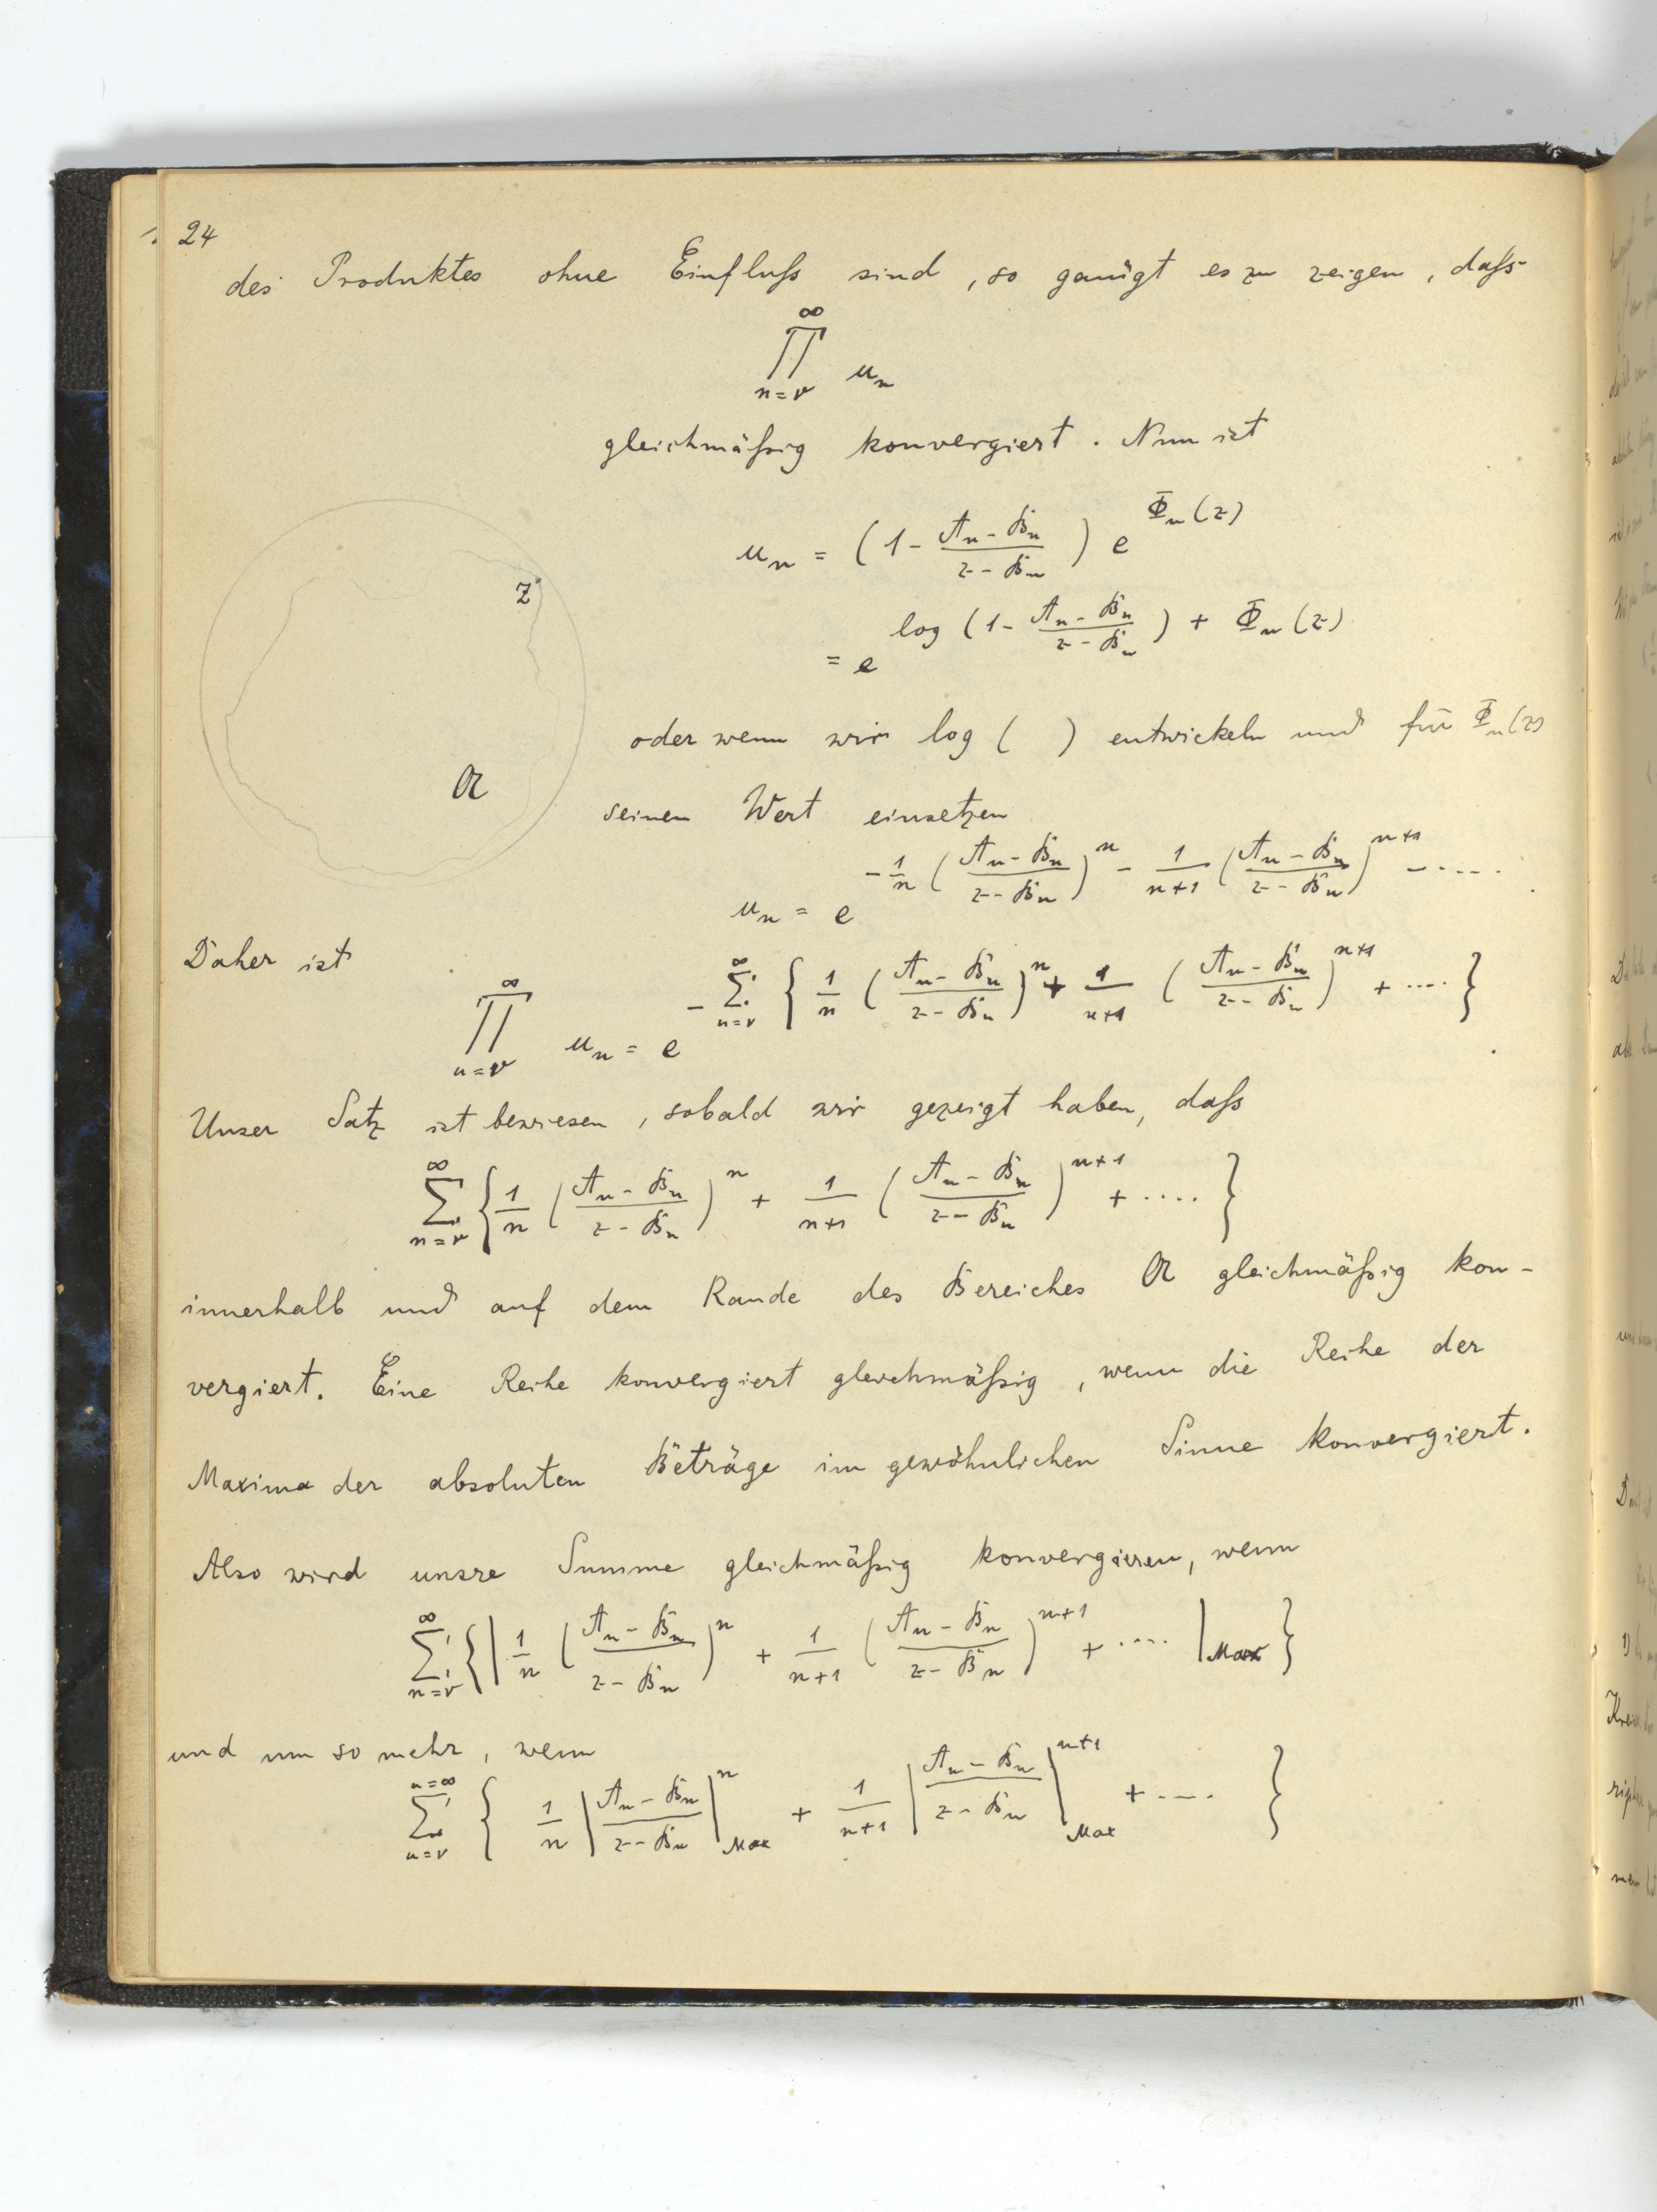 24
des Produktes ohne Einfluß sind, so genügt es zu zeigen, daß
∞
∏ uₙ
n=ν
gleichmäßig konvergiert. Nun ist
uₙ = (1 - (Aₙ - Bₙ)/(z - Bₙ)) e^{Φₙ(z)}
= e^{log (1 - (Aₙ - Bₙ)/(z - Bₙ)) + Φₙ(z)}
z
A
oder wenn wir log ( ) entwickeln und für Φₙ(z)
seinen Wert einsetzen
uₙ = e^{-1/n ((Aₙ - Bₙ)/(z - Bₙ))^n - 1/(n+1) ((Aₙ - Bₙ)/(z - Bₙ))^{n+1} - ....}
Daher ist
∏_{n=ν}^{∞} uₙ = e^{-∑_{n=ν}^{∞} { 1/n ((Aₙ - Bₙ)/(z - Bₙ))^n + 1/(n+1) ((Aₙ - Bₙ)/(z - Bₙ))^{n+1} + .... }}
Unser Satz ist bewiesen, sobald wir gezeigt haben, daß
∑_{n=ν}^{∞} { 1/n ((Aₙ - Bₙ)/(z - Bₙ))^n + 1/(n+1) ((Aₙ - Bₙ)/(z - Bₙ))^{n+1} + .... }
innerhalb und auf dem Rande des Bereiches A gleichmäßig kon-
vergiert. Eine Reihe konvergiert gleichmäßig, wenn die Reihe der
Maxima der absoluten Beträge im gewöhnlichen Sinne konvergiert.
Also wird unsre Summe gleichmäßig konvergieren, wenn
∑_{n=ν}^{∞} { | 1/n ((Aₙ - Bₙ)/(z - Bₙ))^n + 1/(n+1) ((Aₙ - Bₙ)/(z - Bₙ))^{n+1} + .... |_{Max} }
und um so mehr, wenn
∑_{n=ν}^{n=∞} { 1/n |(Aₙ - Bₙ)/(z - Bₙ)|^n_{Max} + 1/(n+1) |(Aₙ - Bₙ)/(z - Bₙ)|^{n+1}_{Max} + .... }